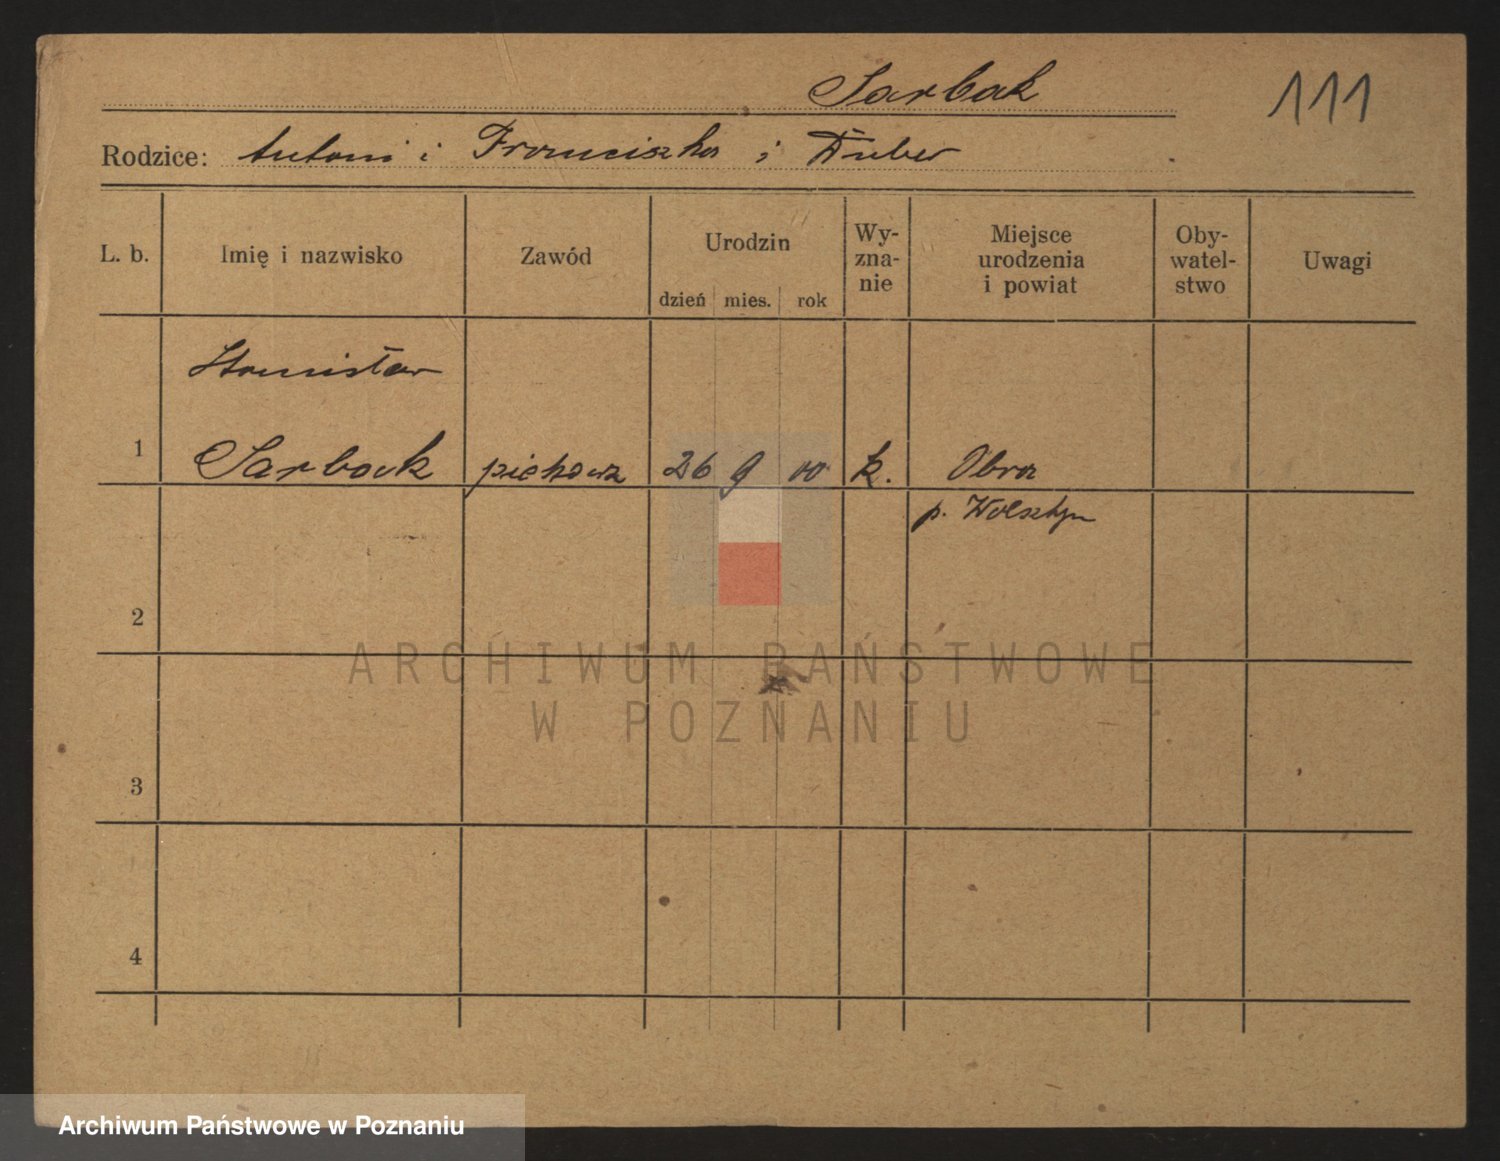 Sarbak
111
Rodzice: Antoni i Franciszka i
L. b. Imię i nazwisko Zawód Urodzin dzień mies. rok Wy-zna-nie Miejsce urodzenia i powiat Oby-watel-stwo Uwagi
Stanisław
1 Sarbak 26 9 00 k. Obra
p. Wolsztyn
2
ARCHIWUM PAŃSTWOWE
W POZNANIU
3
4
Archiwum Państwowe w Poznaniu